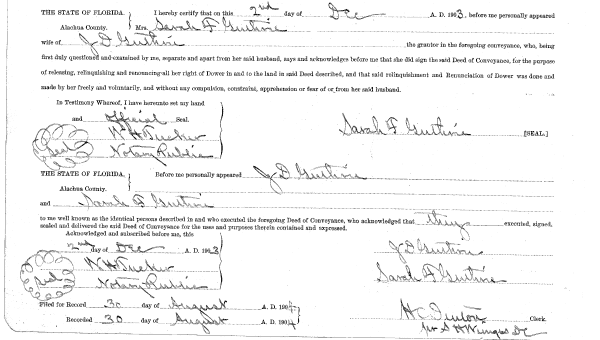 THE STATE OF FLORIDA, I hereby certify that on this 2nd day of Dec A. D. 1903, before me personally appeared
Alachua County. Mrs. Sarah F Guthrie
wife of J D Guthrie the grantor in the foregoing conveyance, who, being
first duly questioned and examined by me, separate and apart from her said husband, says and acknowledges before me that she did sign the said Deed of Conveyance, for the purpose
of releasing, relinquishing and renouncing all her right of Dower in and to the land in said Deed described, and that said relinquishment and Renunciation of Dower was done and
made by her freely and voluntarily, and without any compulsion, constraint, apprehension or fear of or from her said husband.
In Testimony Whereof, I have hereunto set my hand
and official Seal.
Sarah F Guthrie [SEAL.]
W H Tucker
Seal
Notary Public
THE STATE OF FLORIDA, Before me personally appeared J D Guthrie
Alachua County.
and Sarah F Guthrie
to me well known as the identical persons described in and who executed the foregoing Deed of Conveyance, who acknowledged that they executed, signed,
sealed and delivered the said Deed of Conveyance for the uses and purposes therein contained and expressed.
Acknowledged and subscribed before me, this
2nd day of Dec A. D. 1903
J D Guthrie
W H Tucker
Sarah F Guthrie
Seal
Notary Public
Filed for Record 30 day of August A. D. 1904
H C Clerk.
Recorded 30 day of August A. D. 1904
S H DC